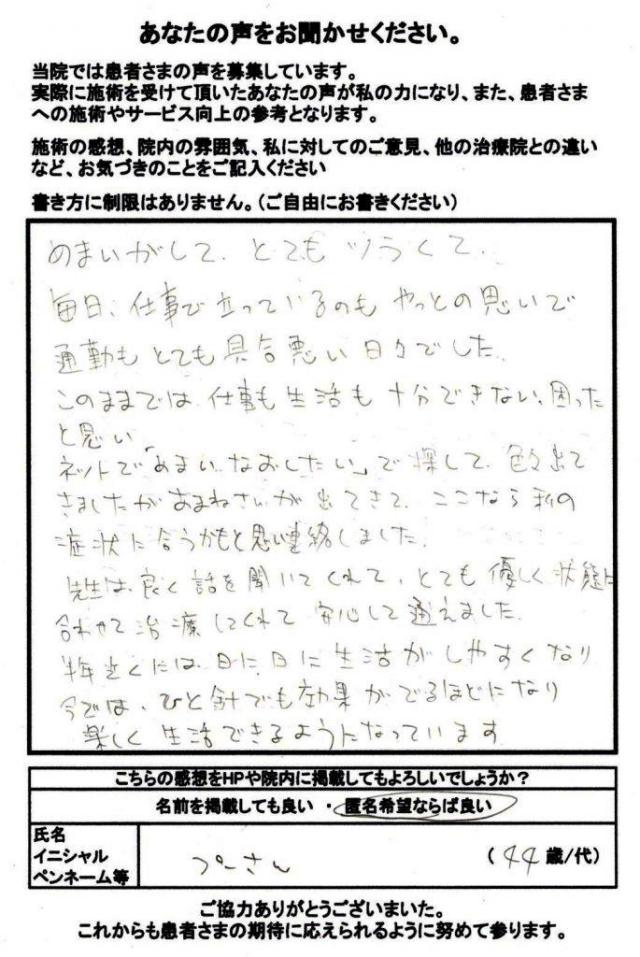 あなたの声をお聞かせください。
当院では患者さまの声を募集しています。
実際に施術を受けて頂いたあなたの声が私の力になり、また、患者さま
への施術やサービス向上の参考となります。
施術の感想、院内の雰囲気、私に対してのご意見、他の治療院との違い
など、お気づきのことをご記入ください
書き方に制限はありません。(ご自由にお書きください)
めまいがして、とてもツラくて、
毎日、仕事で立っているのもやっとの思いで
通勤もとても具合悪い日々でした。
このままでは仕事も生活も十分できない、困った
と思い
ネットで「めまい、なおしたい」で探して、色々出て
きましたがあまねさんが出てきて、ここなら私の
症状に合うかもと思い連絡しました。
先生は、良く話を聞いてくれて、とても優しく状態に
合わせて治療してくれて安心して通えました。
半年近くには、日に日に生活がしやすくなり
今では、ひと針でも効果がでるほどになり
楽しく生活できるようになっています
こちらの感想をHPや院内に掲載してもよろしいでしょうか?
名前を掲載しても良い ・ 匿名希望ならば良い
氏名
イニシャル
ペンネーム等
プーさん
(44歳/代)
ご協力ありがとうございまいた。
これからも患者さまの期待に応えられるように努めて参ります。